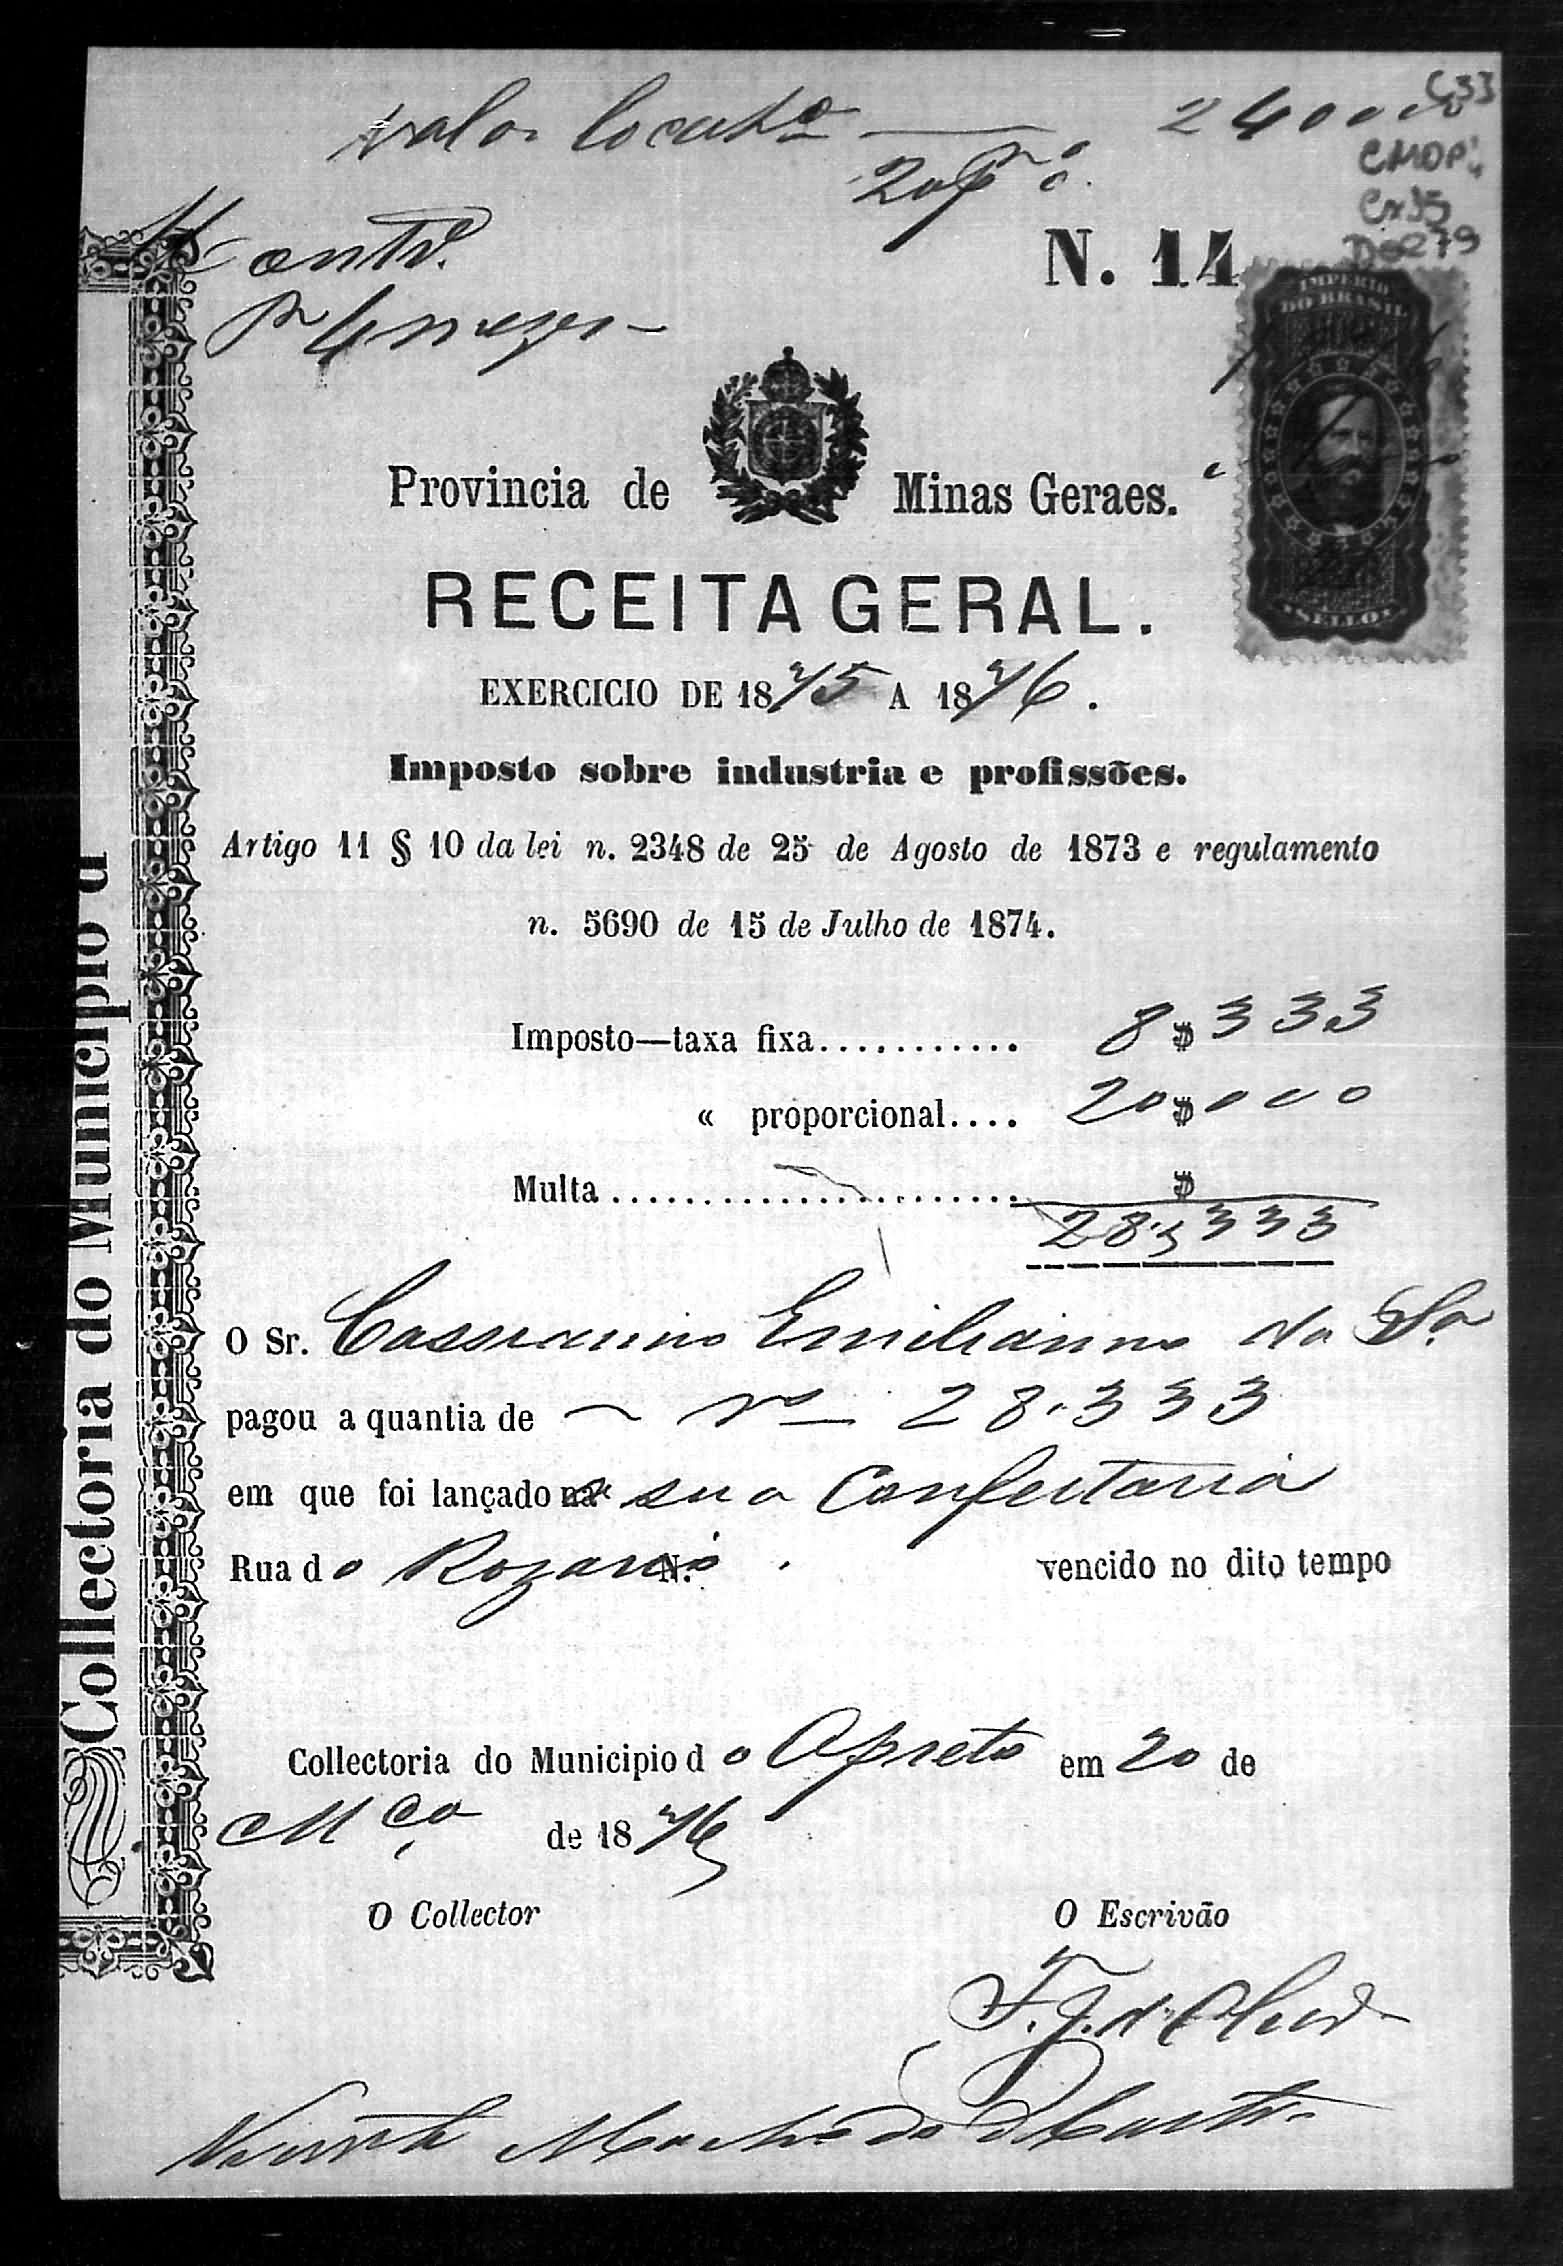 C33
valor locat.o — 240000
CMOP
20 p. c.
Cx 35
Do 279
N. 14
IMPERIO
DO BRASIL
SELLO
4 mezes
Provincia de Minas Geraes.
RECEITA GERAL.
EXERCICIO DE 1875 A 1876.
Imposto sobre industria e profissões.
Artigo 11 § 10 da lei n. 2348 de 25 de Agosto de 1873 e regulamento
n. 5690 de 15 de Julho de 1874.
Imposto—taxa fixa........... 8$333
« proporcional.... 20$000
Multa...................... $
28$333
O Sr. Cassianno Emilianno da Sa
pagou a quantia de rs 28.333
em que foi lançado na sua Confeitaria
Rua do Rozario N. vencido no dito tempo
Collectoria do Municipio do Opreto em 20 de
Mço de 1876
O Collector O Escrivão
Machado de Castro
Collectoria do Municipio d